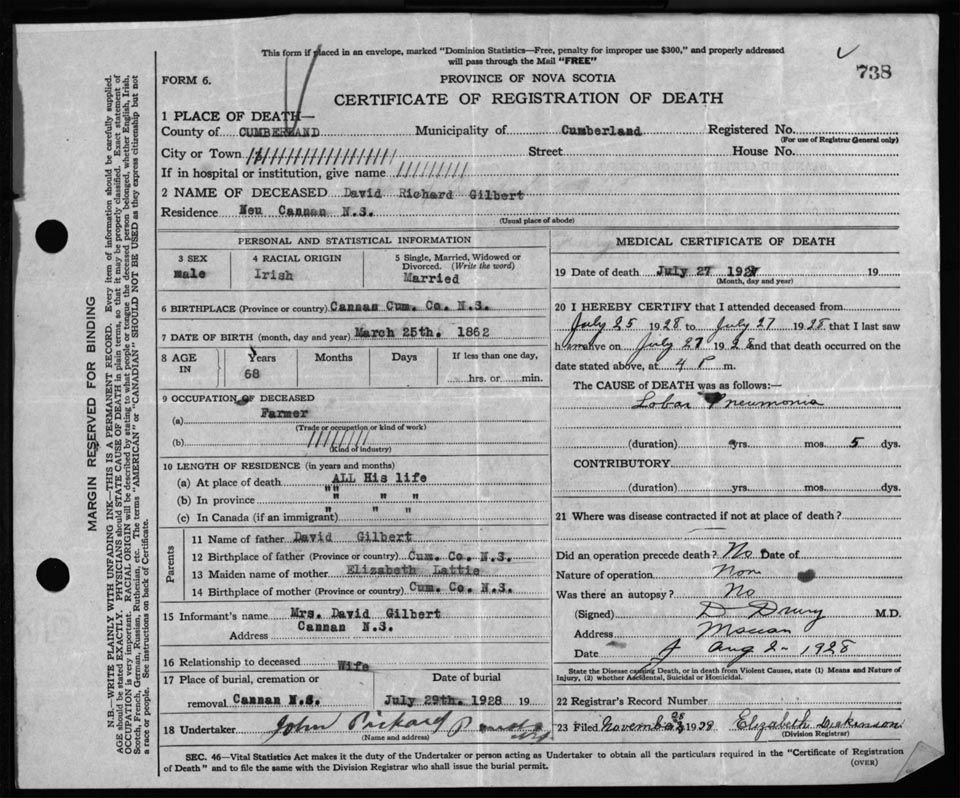 This form if placed in an envelope, marked "Dominion Statistics—Free, penalty for improper use $300," and properly addressed
will pass through the Mail "FREE"
738
FORM 6.
PROVINCE OF NOVA SCOTIA
CERTIFICATE OF REGISTRATION OF DEATH
1 PLACE OF DEATH—
County of CUMBERLAND Municipality of Cumberland Registered No.
(For use of Registrar General only)
City or Town Street House No.
If in hospital or institution, give name
2 NAME OF DECEASED David Richard Gilbert
Residence Neu Cannan N.S.
(Usual place of abode)
PERSONAL AND STATISTICAL INFORMATION
3 SEX 4 RACIAL ORIGIN 5 Single, Married, Widowed or
Divorced. (Write the word)
male Irish Married
6 BIRTHPLACE (Province or country) Cannan Cum. Co. N.S.
7 DATE OF BIRTH (month, day and year) March 25th. 1862
8 AGE IN Years Months Days If less than one day,
68 hrs. or min.
9 OCCUPATION OF DECEASED
(a) Farmer
(Trade or occupation or kind of work)
(b)
(Kind of industry)
10 LENGTH OF RESIDENCE (in years and months)
(a) At place of death ALL His life
(b) In province "" " "
(c) In Canada (if an immigrant) " " "
Parents
11 Name of father David Gilbert
12 Birthplace of father (Province or country) Cum. Co. N.S.
13 Maiden name of mother Elizabeth Lattie
14 Birthplace of mother (Province or country) Cum. Co. N.S.
15 Informant's name Mrs. David Gilbert
Address Cannan N.S.
16 Relationship to deceased Wife
17 Place of burial, cremation or Date of burial
removal Cannan N.S. July 29th. 1928 19
18 Undertaker John Rickard
(Name and address)
MEDICAL CERTIFICATE OF DEATH
19 Date of death July 27 1928 19
(Month, day and year)
20 I HEREBY CERTIFY that I attended deceased from
July 25 1928 to July 27 1928 that I last saw
him alive on July 27 1928 and that death occurred on the
date stated above, at 4 P m.
The CAUSE of DEATH was as follows:—
Lobar Pneumonia
(duration) yrs. mos. 5 dys.
CONTRIBUTORY
(duration) yrs. mos. dys.
21 Where was disease contracted if not at place of death?
Did an operation precede death? No Date of
Nature of operation Non
Was there an autopsy? No
(Signed) D Drury M.D.
Address Maccan
Date Aug 2 - 1928
State the Disease causing Death, or in death from Violent Causes, state (1) Means and Nature of
Injury, (2) whether Accidental, Suicidal or Homicidal.
22 Registrar's Record Number
23 Filed November 28 1928 Elizabeth Dickinson
(Division Registrar)
SEC. 46—Vital Statistics Act makes it the duty of the Undertaker or person acting as Undertaker to obtain all the particulars required in the "Certificate of Registration
of Death" and to file the same with the Division Registrar who shall issue the burial permit.
(OVER)
MARGIN RESERVED FOR BINDING
N.B.—WRITE PLAINLY WITH UNFADING INK—THIS IS A PERMANENT RECORD. Every item of information should be carefully supplied.
AGE should be stated EXACTLY. PHYSICIANS should STATE CAUSE OF DEATH in plain terms, so that it may be properly classified. Exact statement of
OCCUPATION is very important. RACIAL ORIGIN will be described by stating to what people or tongue the deceased person belonged, whether English, Irish,
Scotch, French, German, Russian, Ruthenian, etc. The terms "AMERICAN" or "CANADIAN" SHOULD NOT BE USED as they express citizenship but not
a race or people. See instructions on back of Certificate.